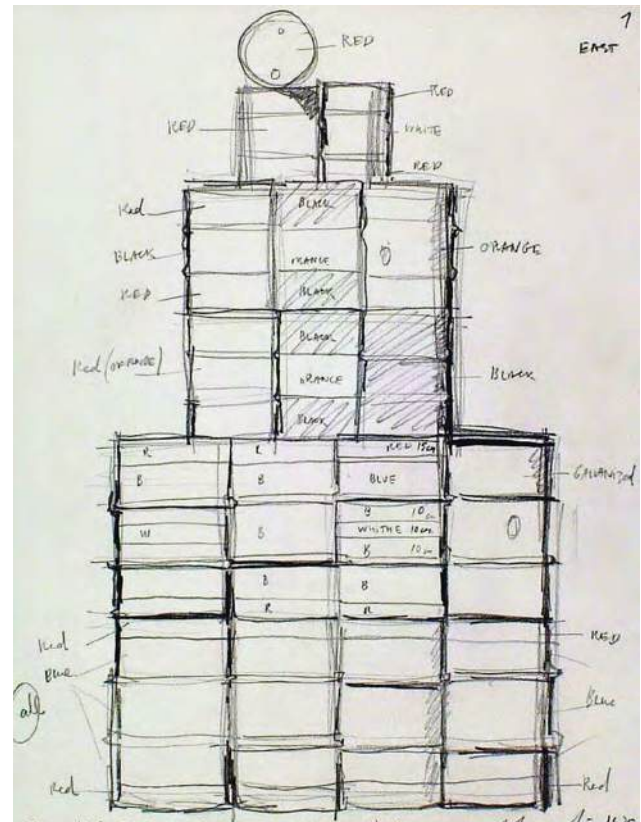 7
EAST
RED
RED
RED
WHITE
RED
Red
BLACK
BLACK
ORANGE
ORANGE
RED
BLACK
BLACK
Red (ORANGE)
ORANGE
BLACK
BLACK
R
R
RED 15cm
B
B
BLUE
GALVANIZED
B 10cm
W
B
WHITHE 10cm
B 10cm
B
B
R
R
Red
RED
Blue
all
Blue
Red
Red